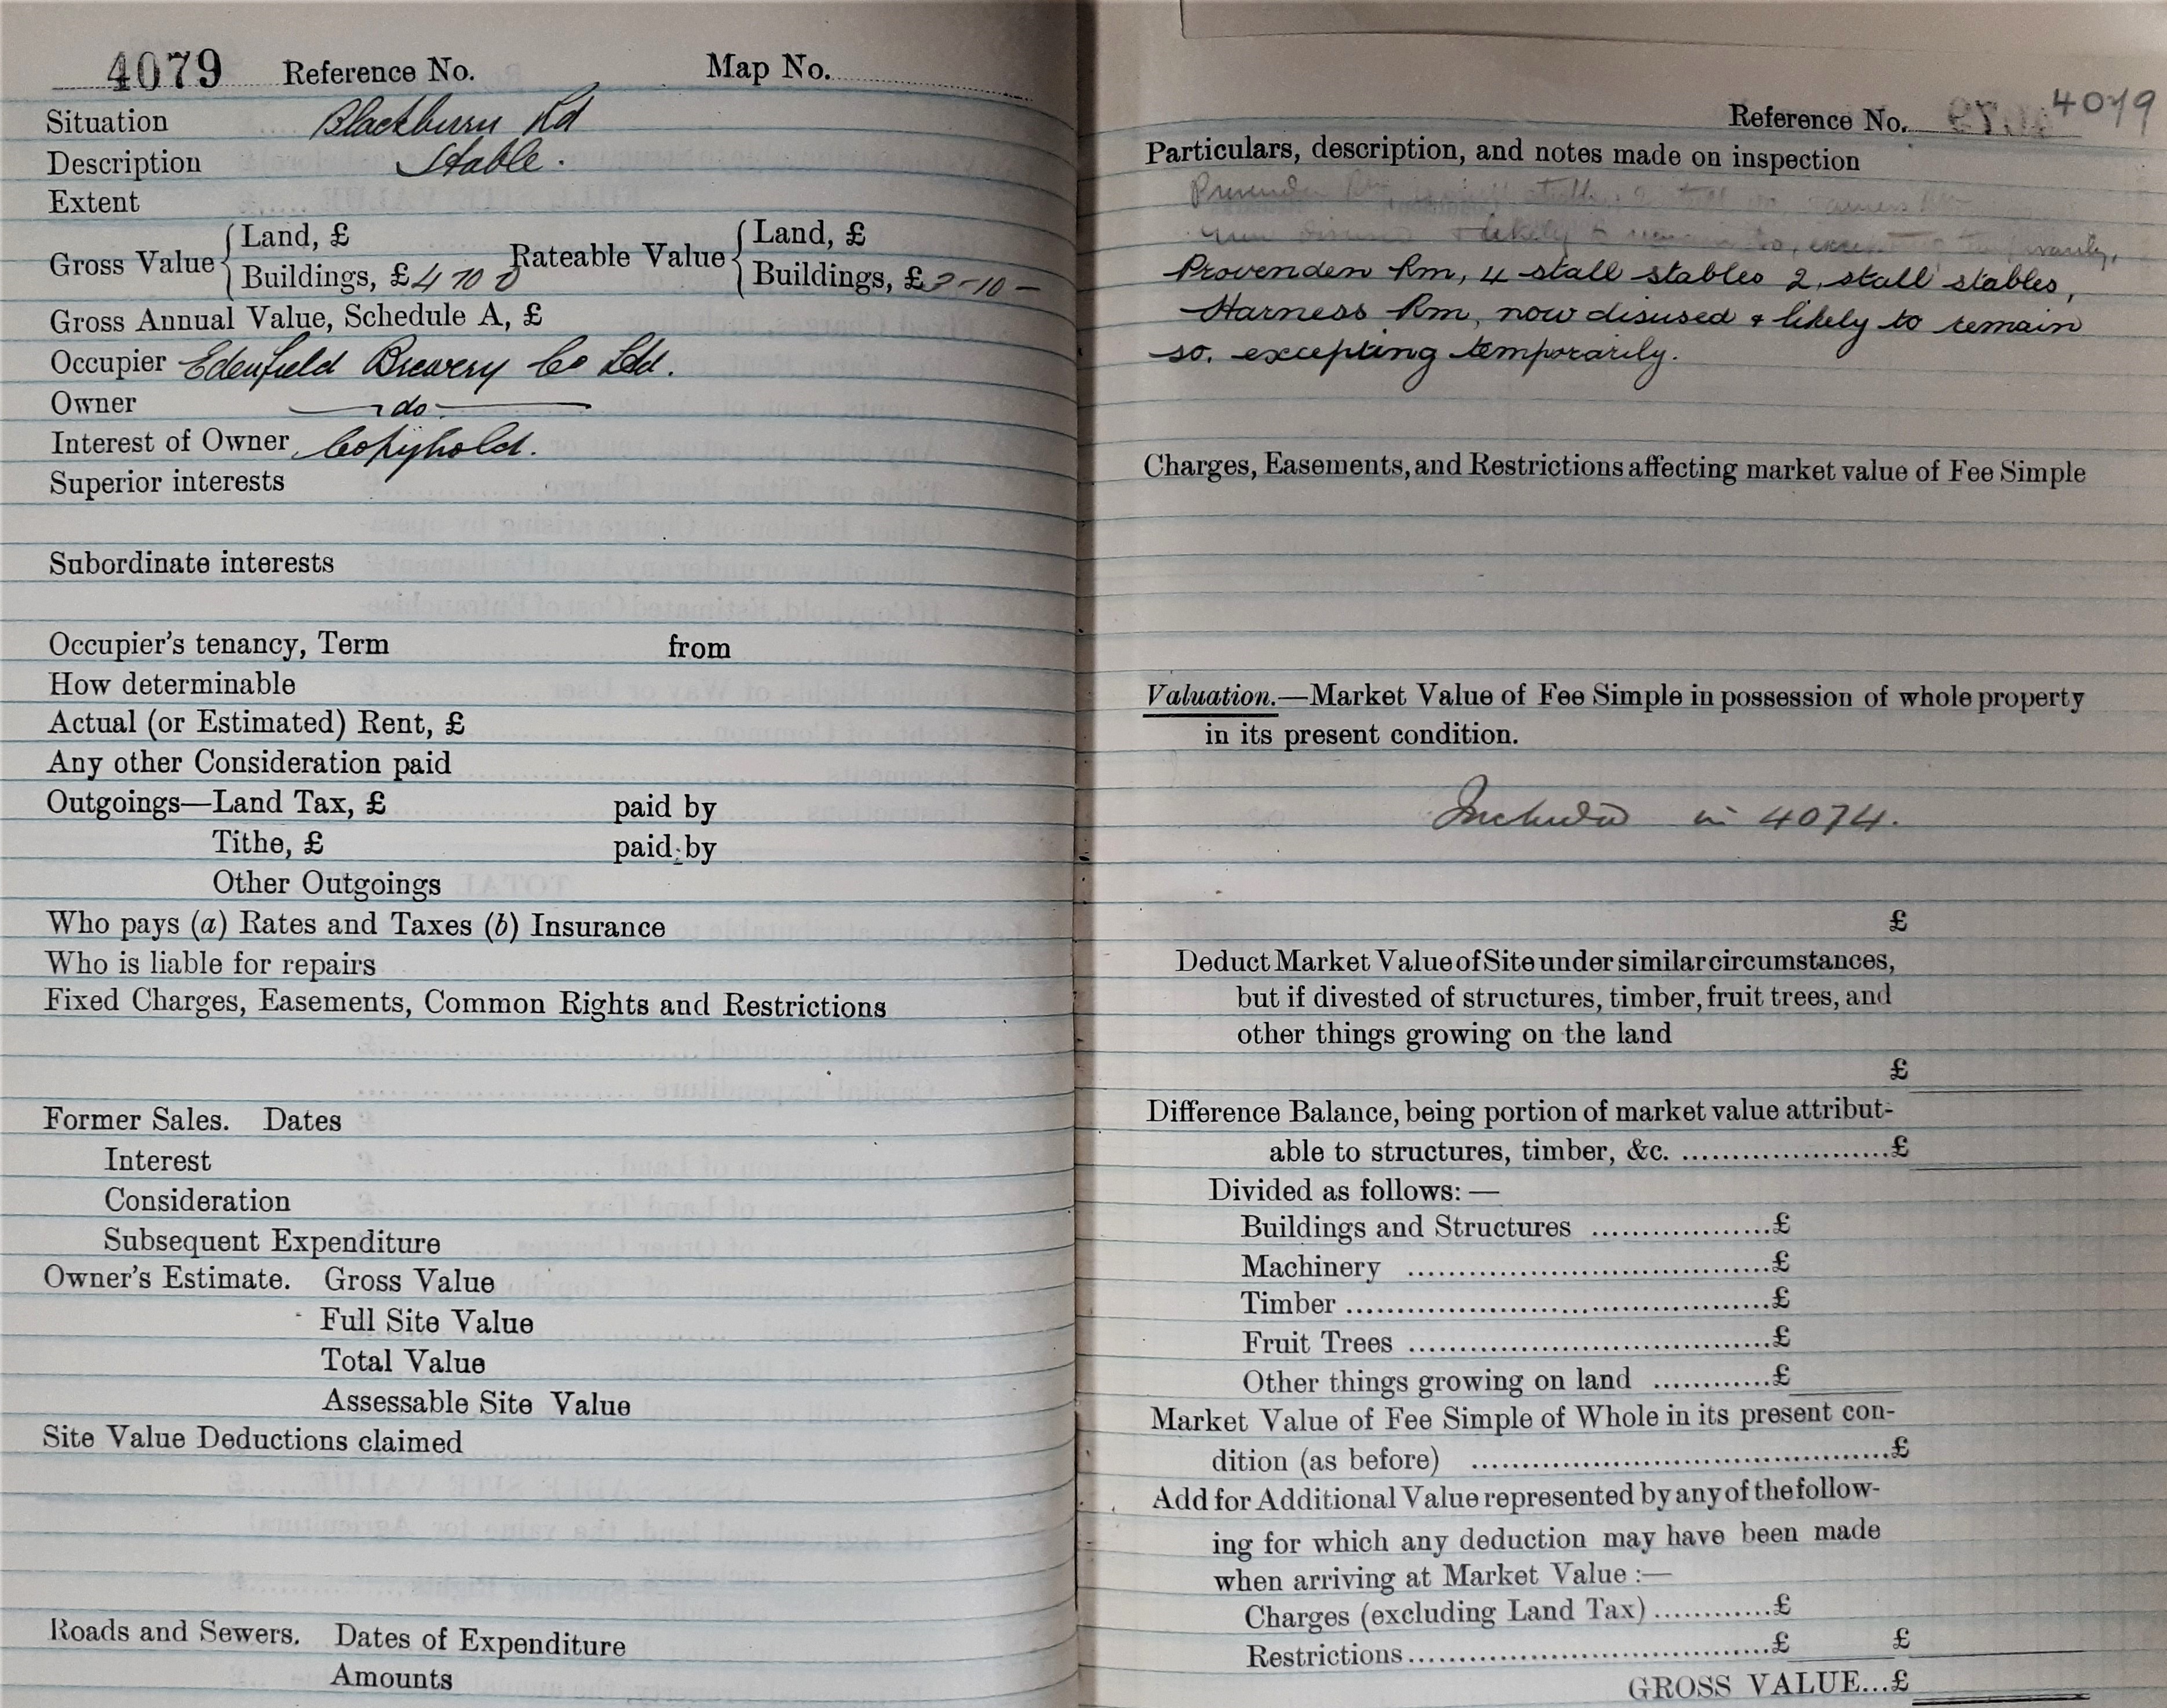 4079 Reference No. Map No.
Situation Blackburn Rd
Description Stable.
Extent
Gross Value { Land, £ Rateable Value { Land, £
Buildings, £4 10 0 Buildings, £3-10-
Gross Annual Value, Schedule A, £
Occupier Edenfield Brewery Co Ltd.
Owner —do—
Interest of Owner Copyhold.
Superior interests
Subordinate interests
Occupier's tenancy, Term from
How determinable
Actual (or Estimated) Rent, £
Any other Consideration paid
Outgoings—Land Tax, £ paid by
Tithe, £ paid by
Other Outgoings
Who pays (a) Rates and Taxes (b) Insurance
Who is liable for repairs
Fixed Charges, Easements, Common Rights and Restrictions
Former Sales. Dates
Interest
Consideration
Subsequent Expenditure
Owner's Estimate. Gross Value
Full Site Value
Total Value
Assessable Site Value
Site Value Deductions claimed
Roads and Sewers. Dates of Expenditure
Amounts
Reference No. 4079
Particulars, description, and notes made on inspection
Provender Rm, 4 stall stables 2, stall stables,
Harness Rm, now disused & likely to remain
so. excepting temporarily.
Charges, Easements, and Restrictions affecting market value of Fee Simple
Valuation.—Market Value of Fee Simple in possession of whole property
in its present condition.
Included in 4074.
£
Deduct Market Value of Site under similar circumstances,
but if divested of structures, timber, fruit trees, and
other things growing on the land
£
Difference Balance, being portion of market value attribut-
able to structures, timber, &c. ........................£
Divided as follows: —
Buildings and Structures .....................£
Machinery ..........................................£
Timber ..................................................£
Fruit Trees ..........................................£
Other things growing on land ............£
Market Value of Fee Simple of Whole in its present con-
dition (as before) ................................................£
Add for Additional Value represented by any of the follow-
ing for which any deduction may have been made
when arriving at Market Value :—
Charges (excluding Land Tax) ............£
Restrictions..........................................£ £
GROSS VALUE...£